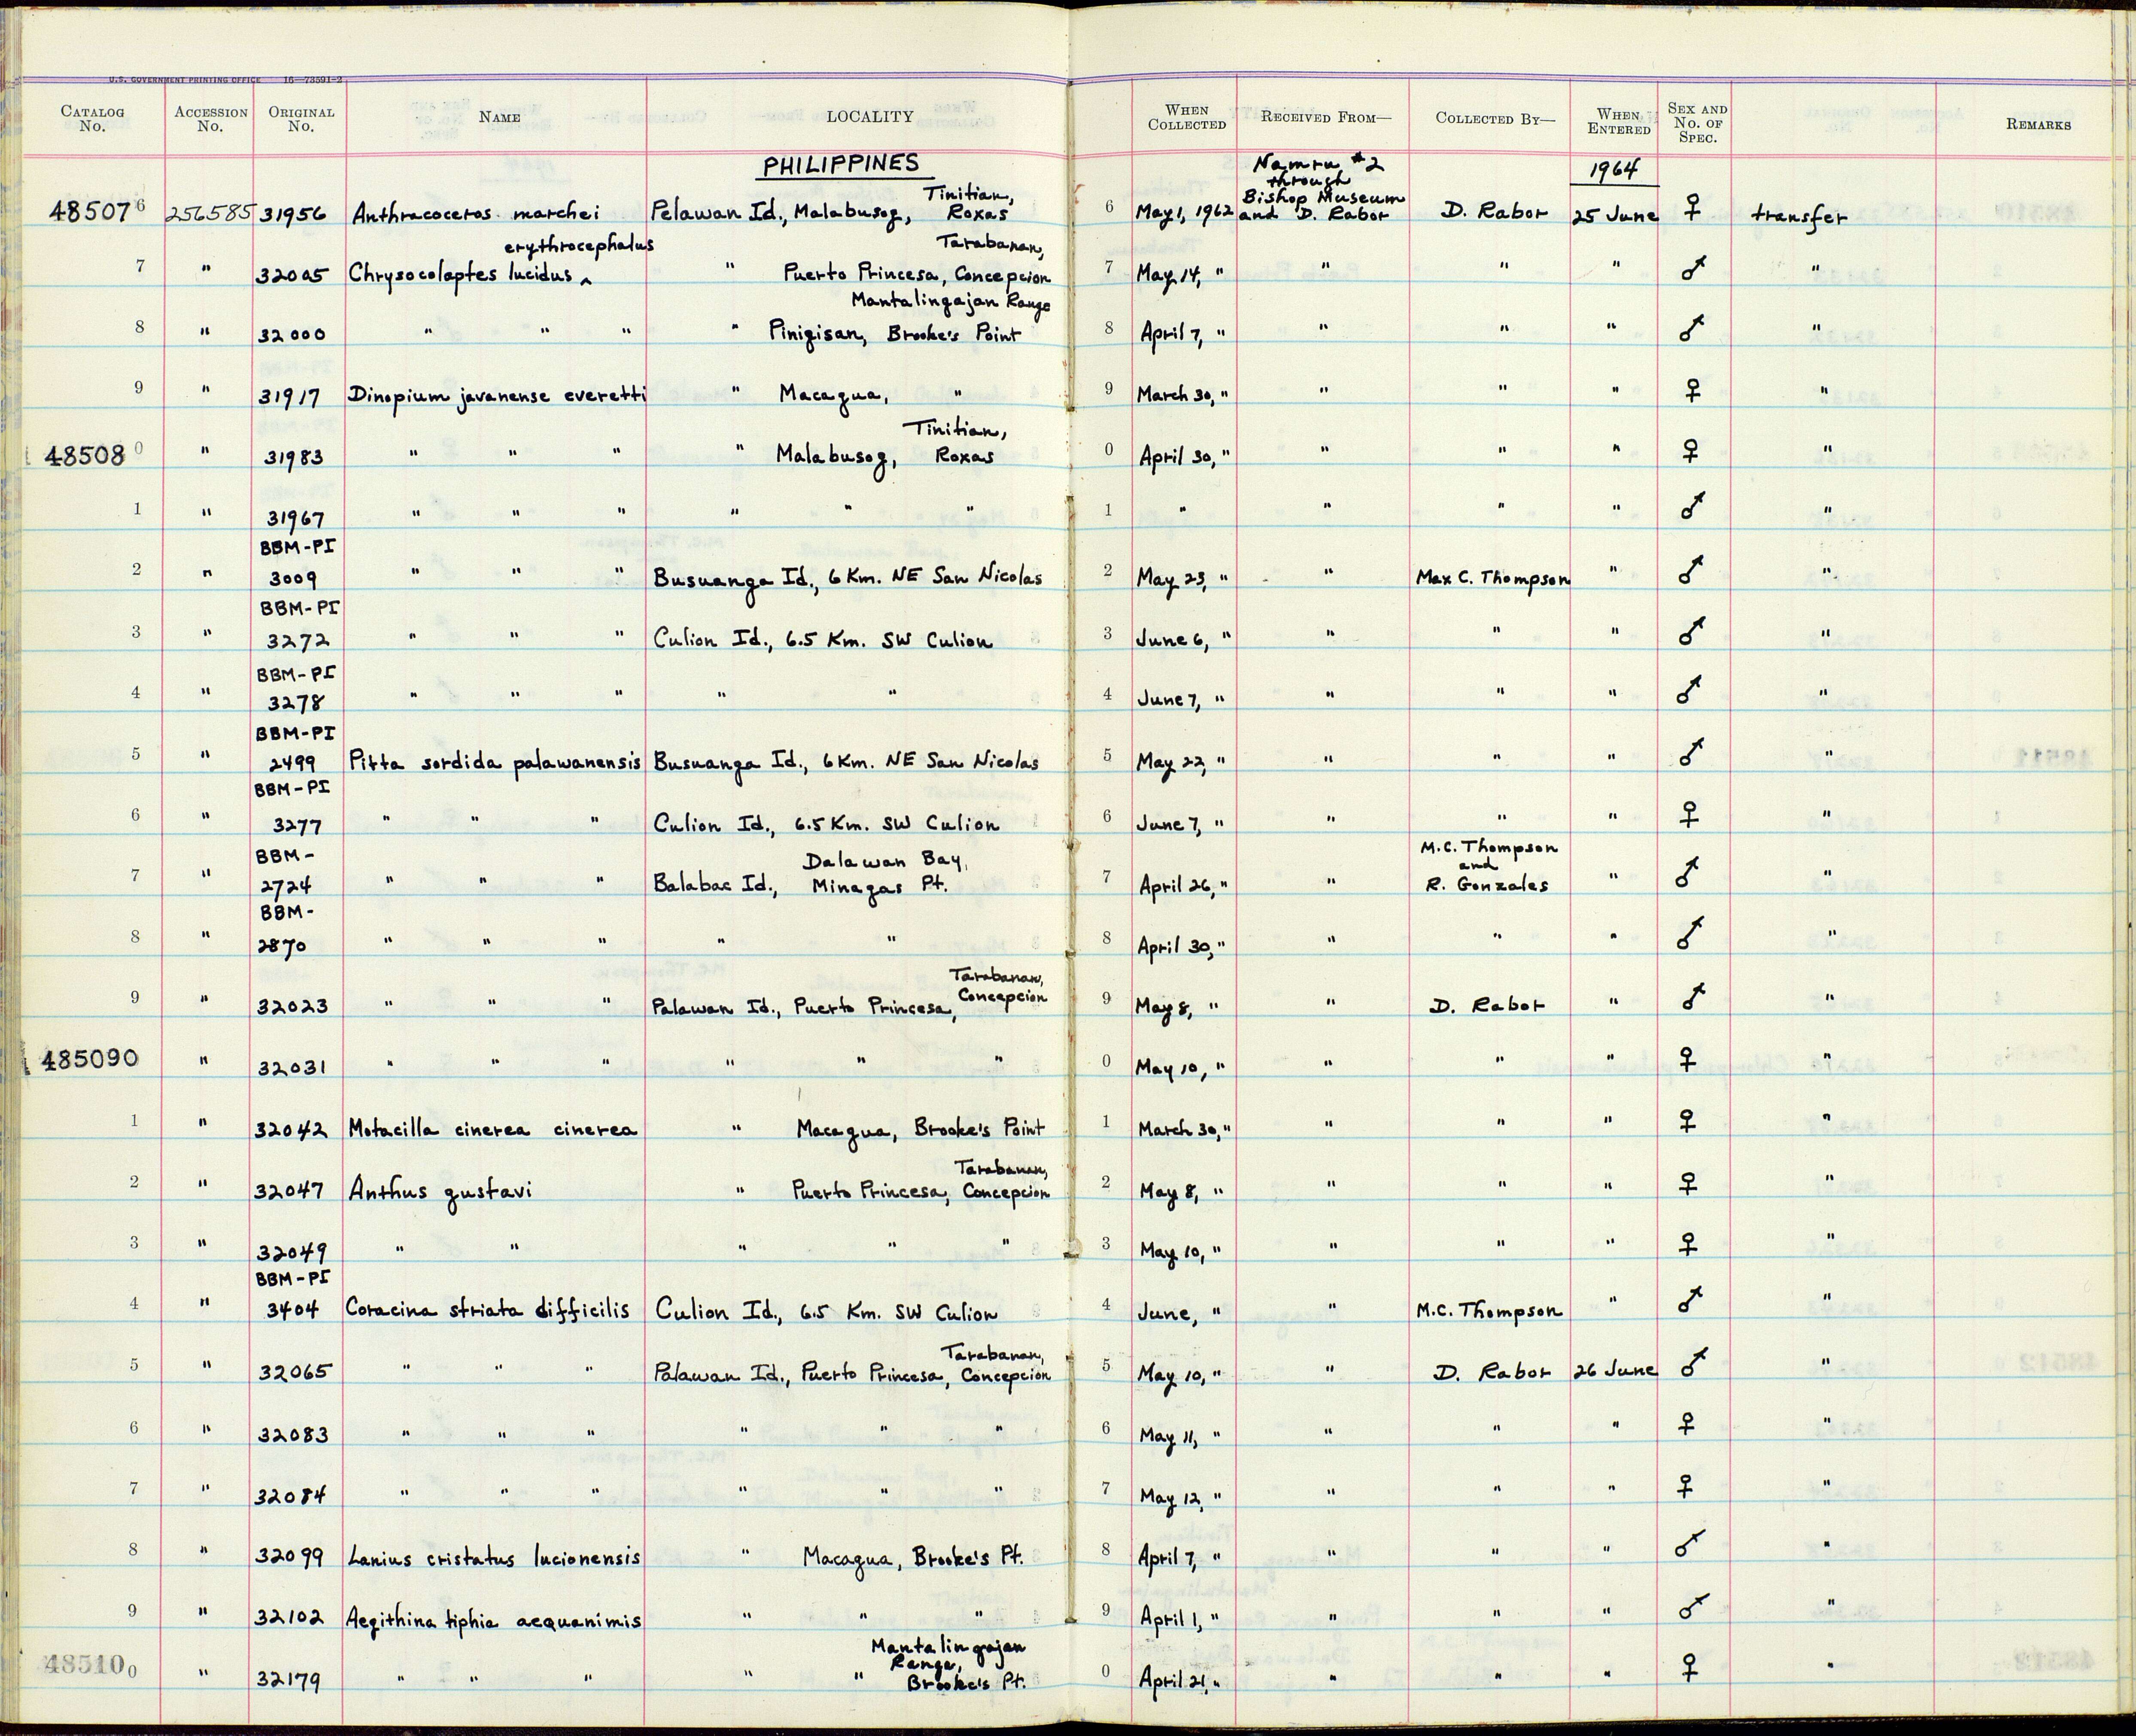 U.S. GOVERNMENT PRINTING OFFICE 16—73591-2
CATALOG No. ACCESSION No. ORIGINAL No. NAME LOCALITY WHEN COLLECTED RECEIVED FROM— COLLECTED BY— WHEN ENTERED SEX AND No. OF SPEC. REMARKS
PHILIPPINES Namru #2 through 1964
485076 256585 31956 Anthracoceros marchei Pelawan Id., Malabusog, Tinitian, Roxas 6 May 1, 1962 Bishop Museum and D. Rabor D. Rabor 25 June ♀ transfer
erythrocephalus Tarabanan,
7 " 32005 Chrysocolaptes lucidus ^ " Puerto Princesa, Concepcion 7 May 14, " " " " ♂ "
Mantalingajan Range
8 " 32000 " " " " Pinigisan, Brooke's Point 8 April 7, " " " " ♂ "
9 " 31917 Dinopium javanense everetti " Macagua, " 9 March 30, " " " " ♀ "
Tinitian,
485080 " 31983 " " " " Malabusog, Roxas 0 April 30, " " " " ♀ "
1 " 31967 " " " " " " 1 " " " " ♂ "
BBM-PI
2 " 3009 " " " Busuanga Id., 6 Km. NE San Nicolas 2 May 23, " " Max C. Thompson " ♂ "
BBM-PI
3 " 3272 " " " Culion Id., 6.5 Km. SW Culion 3 June 6, " " " " ♂ "
BBM-PI
4 " 3278 " " " " " 4 June 7, " " " " ♂ "
BBM-PI
5 " 2499 Pitta sordida palawanensis Busuanga Id., 6 Km. NE San Nicolas 5 May 22, " " " " ♂ "
BBM-PI
6 " 3277 " " " Culion Id., 6.5 Km. SW Culion 6 June 7, " " " " ♀ "
BBM- Dalawan Bay, M.C. Thompson and
7 " 2724 " " " Balabac Id., Minagas Pt. 7 April 26, " " R. Gonzales " ♂ "
BBM-
8 " 2870 " " " " " 8 April 30, " " " " ♂ "
Tarabanan,
9 " 32023 " " " Palawan Id., Puerto Princesa, Concepcion 9 May 8, " " D. Rabor " ♂ "
485090 " 32031 " " " " " " 0 May 10, " " " " ♀ "
1 " 32042 Motacilla cinerea cinerea " Macagua, Brooke's Point 1 March 30, " " " " ♀ "
Tarabanan,
2 " 32047 Anthus gustavi " Puerto Princesa, Concepcion 2 May 8, " " " " ♀ "
3 " 32049 " " " " " 3 May 10, " " " " ♀ "
BBM-PI
4 " 3404 Coracina striata difficilis Culion Id., 6.5 Km. SW Culion 4 June, " " M.C. Thompson " ♂ "
Tarabanan,
5 " 32065 " " " Palawan Id., Puerto Princesa, Concepcion 5 May 10, " " D. Rabor 26 June ♂ "
6 " 32083 " " " " " " 6 May 11, " " " " ♀ "
7 " 32084 " " " " " " 7 May 12, " " " " ♀ "
8 " 32099 Lanius cristatus lucionensis " Macagua, Brooke's Pt. 8 April 7, " " " " ♂ "
9 " 32102 Aegithina tiphia aequanimis " " " 9 April 1, " " " " ♂ "
Mantalingajan Range,
485100 " 32179 " " " " " Brooke's Pt. 0 April 21, " " " " ♀ "